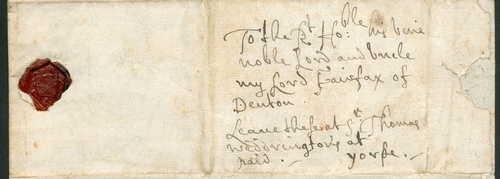 To the Rt Ho:ble his verie
noble Lord and Uncle
my Lord Fairfax of
Denton
Leave these at Sr Thomas
Weddringtons at
yorke.